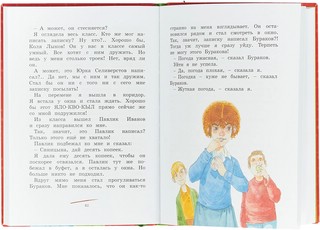 — А может, он стесняется?
Я оглядела весь класс. Кто же мог на-
писать записку? Ну кто?.. Хорошо бы,
Коля Лыков! Он у нас в классе самый
умный. Все хотят с ним дружить. Но
ведь у меня столько троек! Нет, вряд ли
он.
А может, это Юрка Селиверстов написал?
Да нет, мы с ним и так дружим.
Стал бы он ни с того ни с сего мне
записку посылать!
На перемене я вышла в коридор.
Я встала у окна и стала ждать. Хорошо
бы этот ЯЛО-КВО-КЫЛ прямо сейчас же
со мной подружился!
Из класса вышел Павлик Иванов
и сразу пошёл ко мне.
Так, значит, это Павлик написал?
Только этого ещё не хватало!
Павлик подбежал ко мне и сказал:
— Синицына, дай десять копеек.
Я дала ему десять копеек, чтобы он
поскорее отвязался. Павлик тут же по-
бежал в буфет, а я осталась у окна. Но
больше никто не подходил.
Вдруг мимо меня стал прогуливаться
Бураков. Мне показалось, что он как-то
странно на меня взглядывает. Он оста-
новился рядом и стал смотреть в окно.
Так, значит, записку написал Бураков?!
Тогда уж лучше я сразу уйду. Терпеть
не могу этого Буракова!
— Погода ужасная, — сказал Бураков.
Уйти я не успела.
— Да, погода плохая, — сказала я.
— Погодка — хуже не бывает, — сказал
Бураков.
— Жуткая погода, — сказала я.